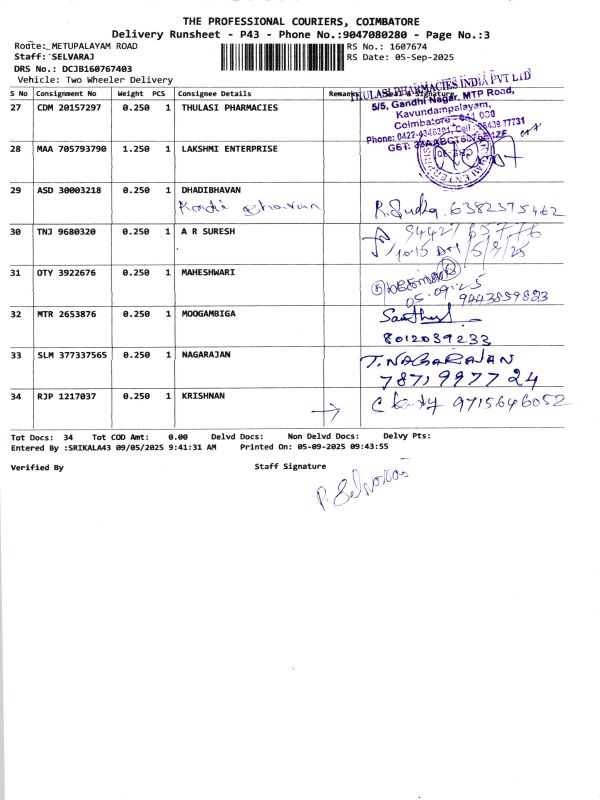 THE PROFESSIONAL COURIERS, COIMBATORE
Delivery Runsheet - P43 - Phone No.:9047080280 - Page No.:3
Route: METUPALAYAM ROAD RS No.: 1607674
Staff: SELVARAJ RS Date: 05-Sep-2025
DRS No.: DCJB160767403
Vehicle: Two Wheeler Delivery
S No Consignment No Weight PCS Consignee Details Remarks Seal & Signature
27 CDM 20157297 0.250 1 THULASI PHARMACIES
THULASI PHARMACIES INDIA PVT LTD
5/5, Gandhi Nagar, MTP Road,
Kavundampalayam,
Coimbatore - 641 030
28 MAA 705793790 1.250 1 LAKSHMI ENTERPRISE
29 ASD 30003218 0.250 1 DHADIBHAVAN
R. Sudha 6382375462
30 TNJ 9680320 0.250 1 A R SURESH
5/9/25
31 OTY 3922676 0.250 1 MAHESHWARI
05.09.25
9443859823
32 MTR 2653876 0.250 1 MOOGAMBIGA
8012039233
33 SLM 377337565 0.250 1 NAGARAJAN T. NAGARAJAN
7871997724
34 RJP 1217037 0.250 1 KRISHNAN
→ 9715646052
Tot Docs: 34 Tot COD Amt: 0.00 Delvd Docs: Non Delvd Docs: Delvy Pts:
Entered By :SRIKALA43 09/05/2025 9:41:31 AM Printed On: 05-09-2025 09:43:55
Verified By Staff Signature